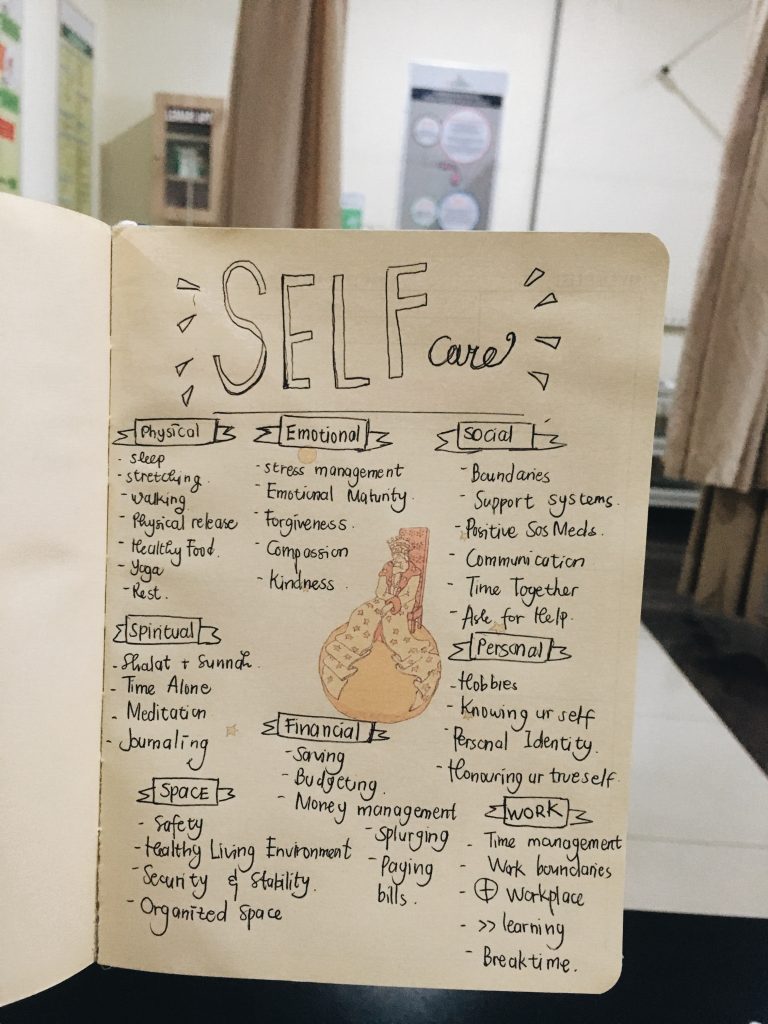 SELF care
Physical
- sleep
- stretching.
- walking
- Physical release
- Healthy Food.
- Yoga
- Rest.
Emotional
- stress management
- Emotional Maturity.
- Forgiveness.
- Compassion
- Kindness.
Social
- Boundaries
- Support systems.
- Positive Sos Meds.
- Communication
- Time Together
- Ask for Help.
Spiritual
- Shalat + Sunnah.
- Time Alone
- Meditation
- Journaling
Personal
- Hobbies
- Knowing ur self
- Personal Identity.
- Honouring ur true self.
Financial
- Saving
- Budgeting.
- Money management
- Splurging
- Paying
bills.
SPACE
- Safety
- Healthy Living Environment
- Security & Stability.
- Organized Space
WORK
- Time management
- Work boundaries
- ⊕ Workplace
- >> learning
- Breaktime.